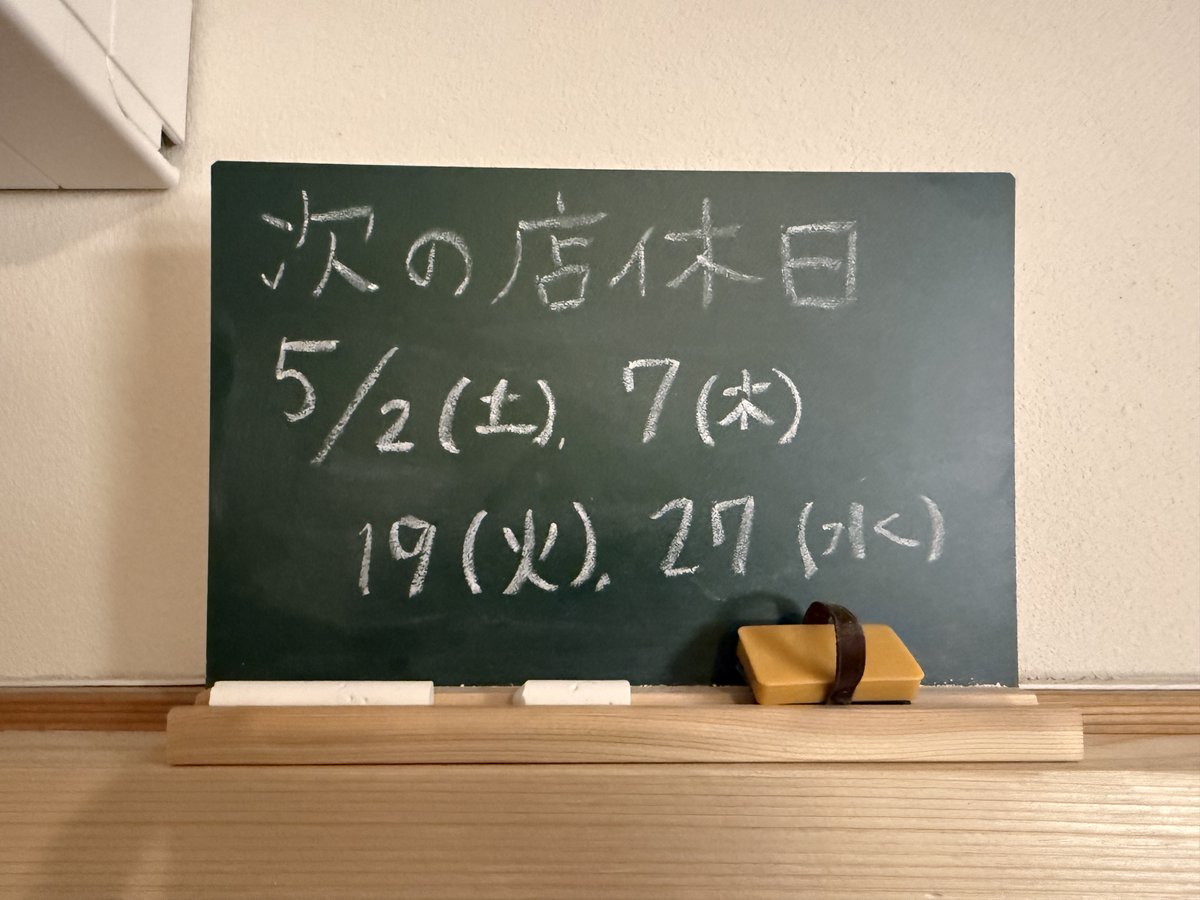 次の店休日
5/2(土), 7(木)
19(火), 27(水)